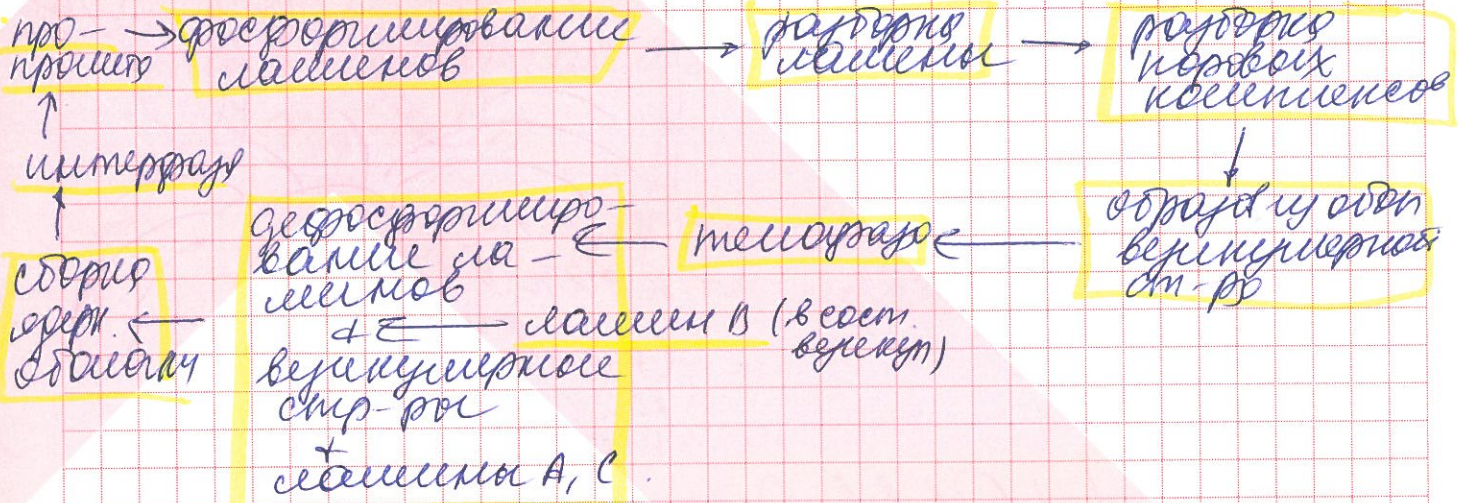 про- → фосфорилирование
промета
ламинов
→ разборка
ламины
→ разборка
поровых
комплексов
интерфаза
образ из обол
везикулярной
ст-ра
телофаза
дефосфорилиро-
вание ла-
минов
+
везикулярные
стр-ры
+
ламины А, С.
ламин В (в сост.
везикул)
сборка
ядерн.
оболочки